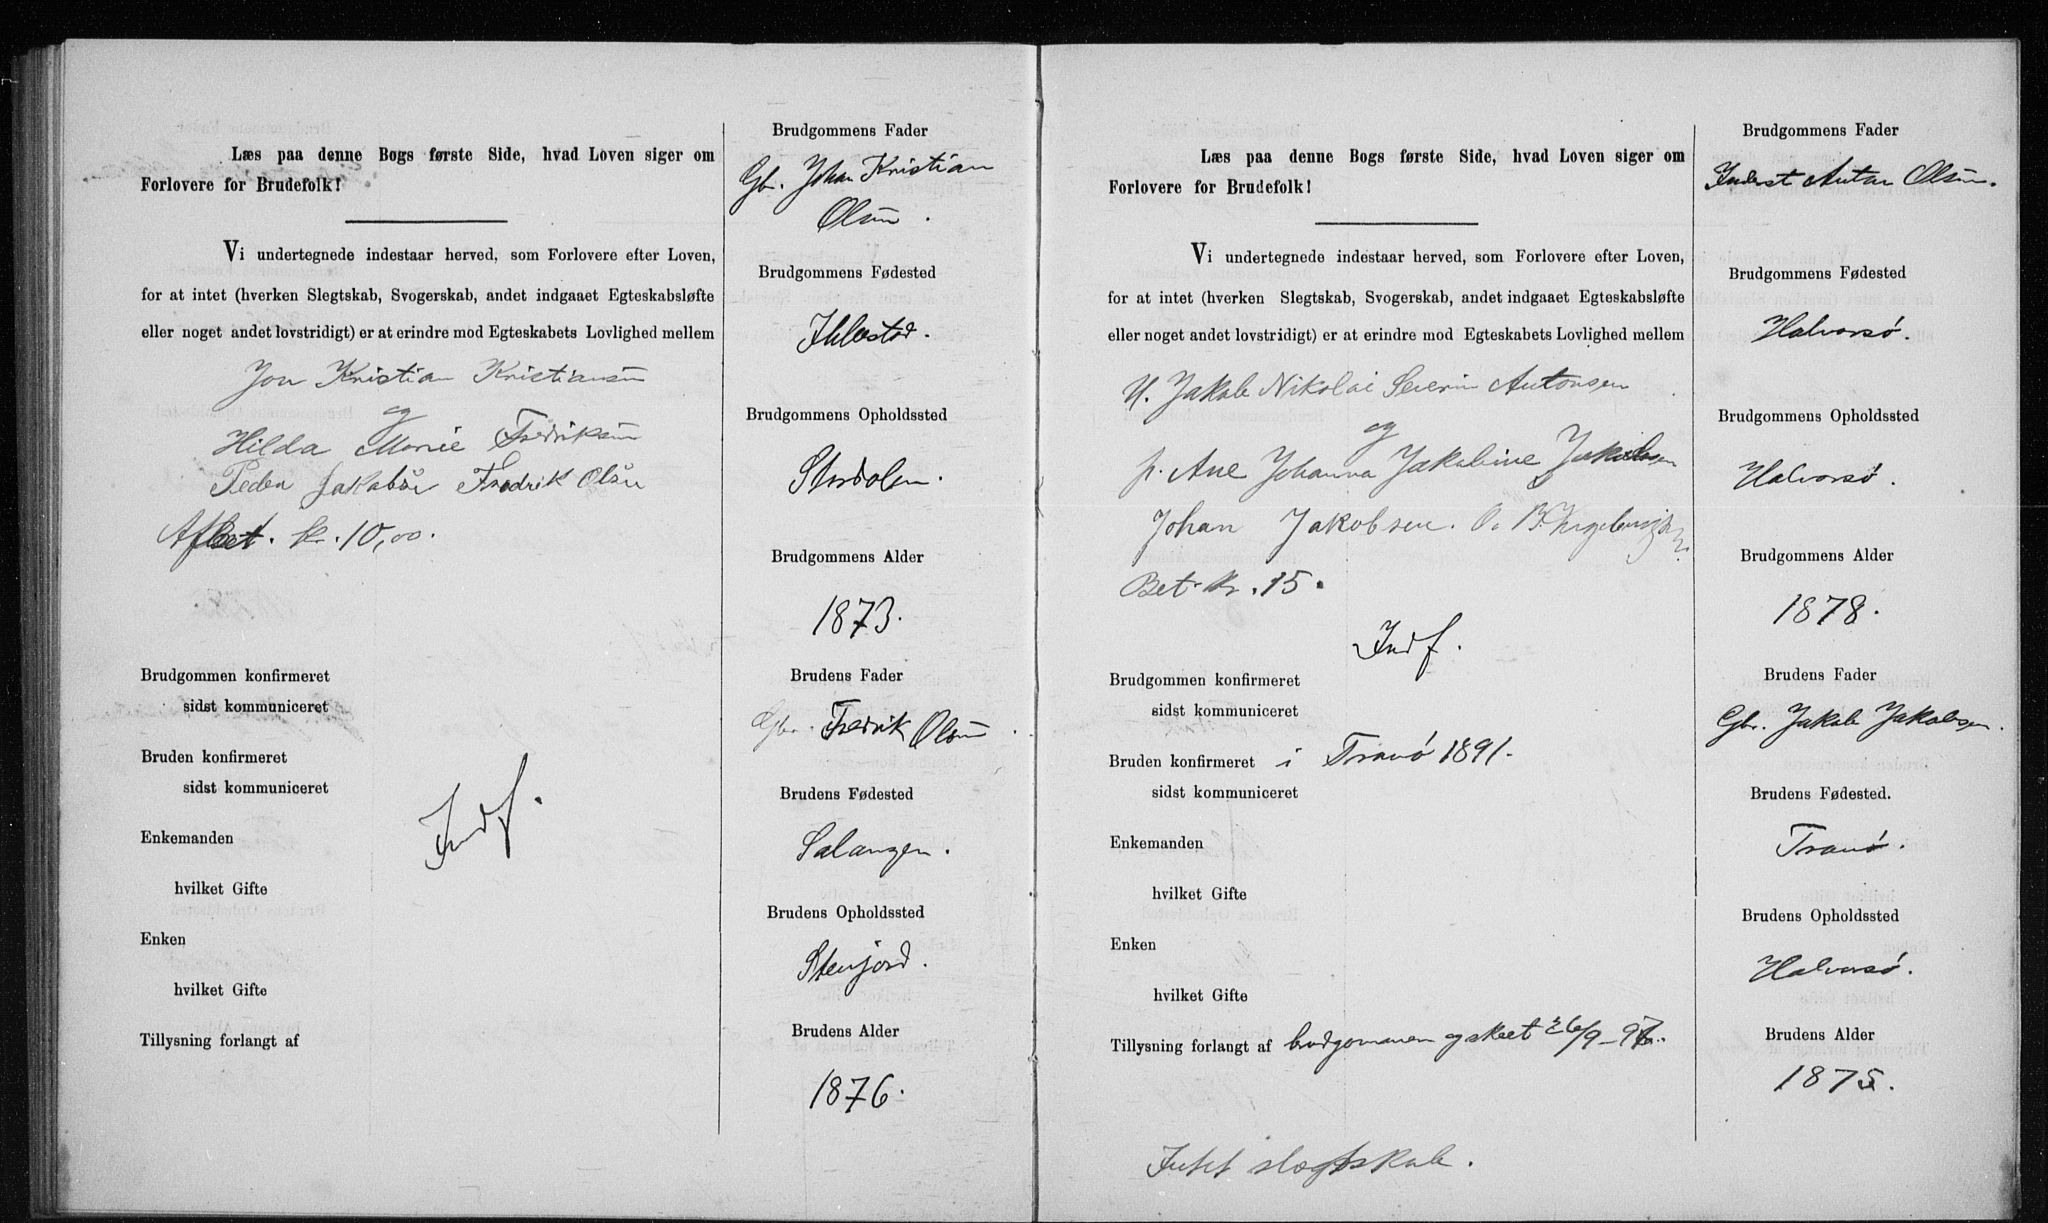 Læs paa denne Bogs første Side, hvad Loven siger om
Forlovere for Brudefolk!
Vi undertegnede indestaar herved, som Forlovere efter Loven,
for at intet (hverken Slegtskab, Svogerskab, andet indgaaet Egteskabsløfte
eller noget andet lovstridigt) er at erindre mod Egteskabets Lovlighed mellem
Jon Kristian Kristiansen
og
Hilda Marie Fredriksen
Peder Jakobsen Fredrik Olsen
Afbet. kr. 10,00.
Brudgommen konfirmeret
sidst kommuniceret
Bruden konfirmeret
sidst kommuniceret
Indf.
Enkemanden
hvilket Gifte
Enken
hvilket Gifte
Tillysning forlangt af
Brudgommens Fader
Gbr. Johan Kristian
Olsen.
Brudgommens Fødested
Ibbestad.
Brudgommens Opholdssted
Stordalen.
Brudgommens Alder
1873.
Brudens Fader
Gbr. Fredrik Olsen.
Brudens Fødested
Salangen.
Brudens Opholdssted
Stenjord.
Brudens Alder
1876.
Læs paa denne Bogs første Side, hvad Loven siger om
Forlovere for Brudefolk!
Vi undertegnede indestaar herved, som Forlovere efter Loven,
for at intet (hverken Slegtskab, Svogerskab, andet indgaaet Egteskabsløfte
eller noget andet lovstridigt) er at erindre mod Egteskabets Lovlighed mellem
U. Jakob Nikolai Severin Antonsen
og
p. Ane Johanna Jakobine Jakobsen
Johan Jakobsen. O. B. Ingebrigtsen
Bet. kr. 15.
Indf.
Brudgommen konfirmeret
sidst kommuniceret
Bruden konfirmeret i Tranø 1891.
sidst kommuniceret
Enkemanden
hvilket Gifte
Enken
hvilket Gifte
Tillysning forlangt af brudgommen og skeet 26/9-97.
Intet slægtskab.
Brudgommens Fader
Inderst Anton Olsen.
Brudgommens Fødested
Halvorsø.
Brudgommens Opholdssted
Halvorsø.
Brudgommens Alder
1878.
Brudens Fader
Gbr. Jakob Jakobsen.
Brudens Fødested.
Tranø.
Brudens Opholdssted
Halvorsø.
Brudens Alder
1875.